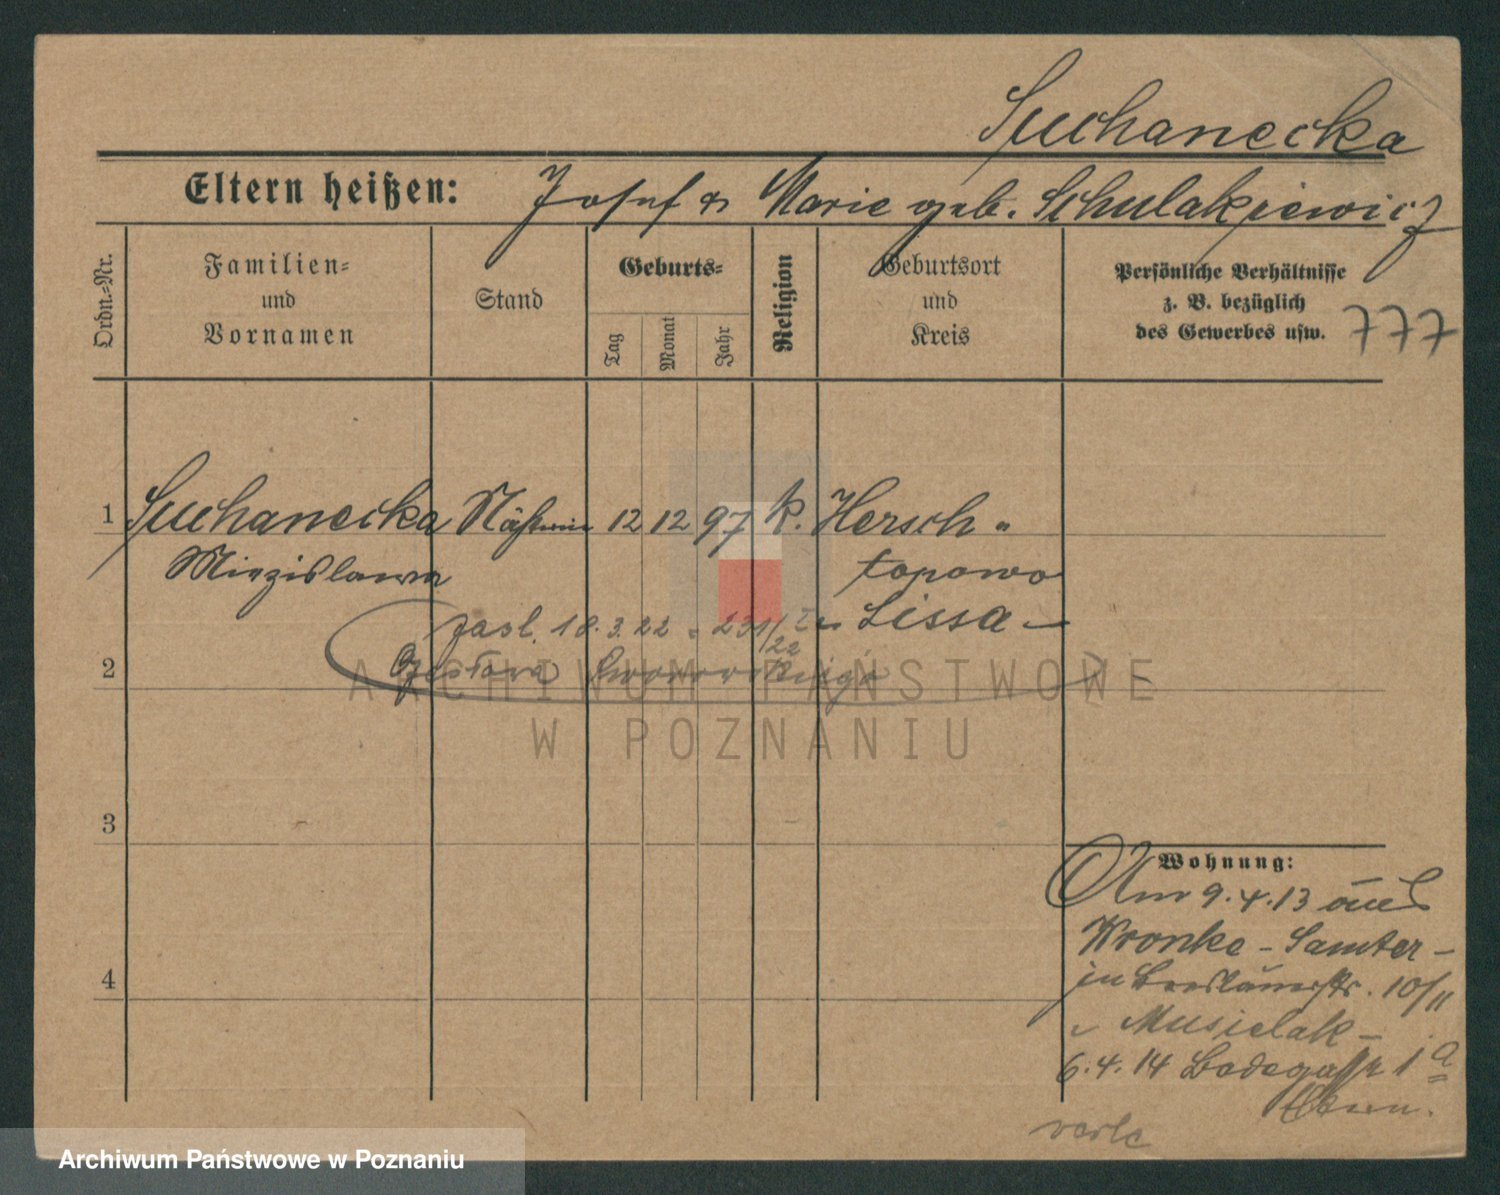 Suchanecka
Eltern heißen: Josef & Marie geb. Schulakiewicz
Ordn.-Nr.
Familien-
und
Vornamen
Stand
Geburts-
Tag
Monat
Jahr
Religion
Geburtsort
und
Kreis
Persönliche Verhältnisse
z. B. bezüglich
des Gewerbes usw.
777
1 Suchanecka Näherin 12 12 97 k. Hersch-
Miezislawa topowo
Lissa -
zasl. 18.3.22 231/22
2
3
4
Wohnung:
Am 9.4.13 aus
Wronke - Samter -
in Breslauerstr. 10/II
Musielak -
6.4.14 Badegasse 1a
Eltern.
ARCHIWUM PAŃSTWOWE
W POZNANIU
Archiwum Państwowe w Poznaniu